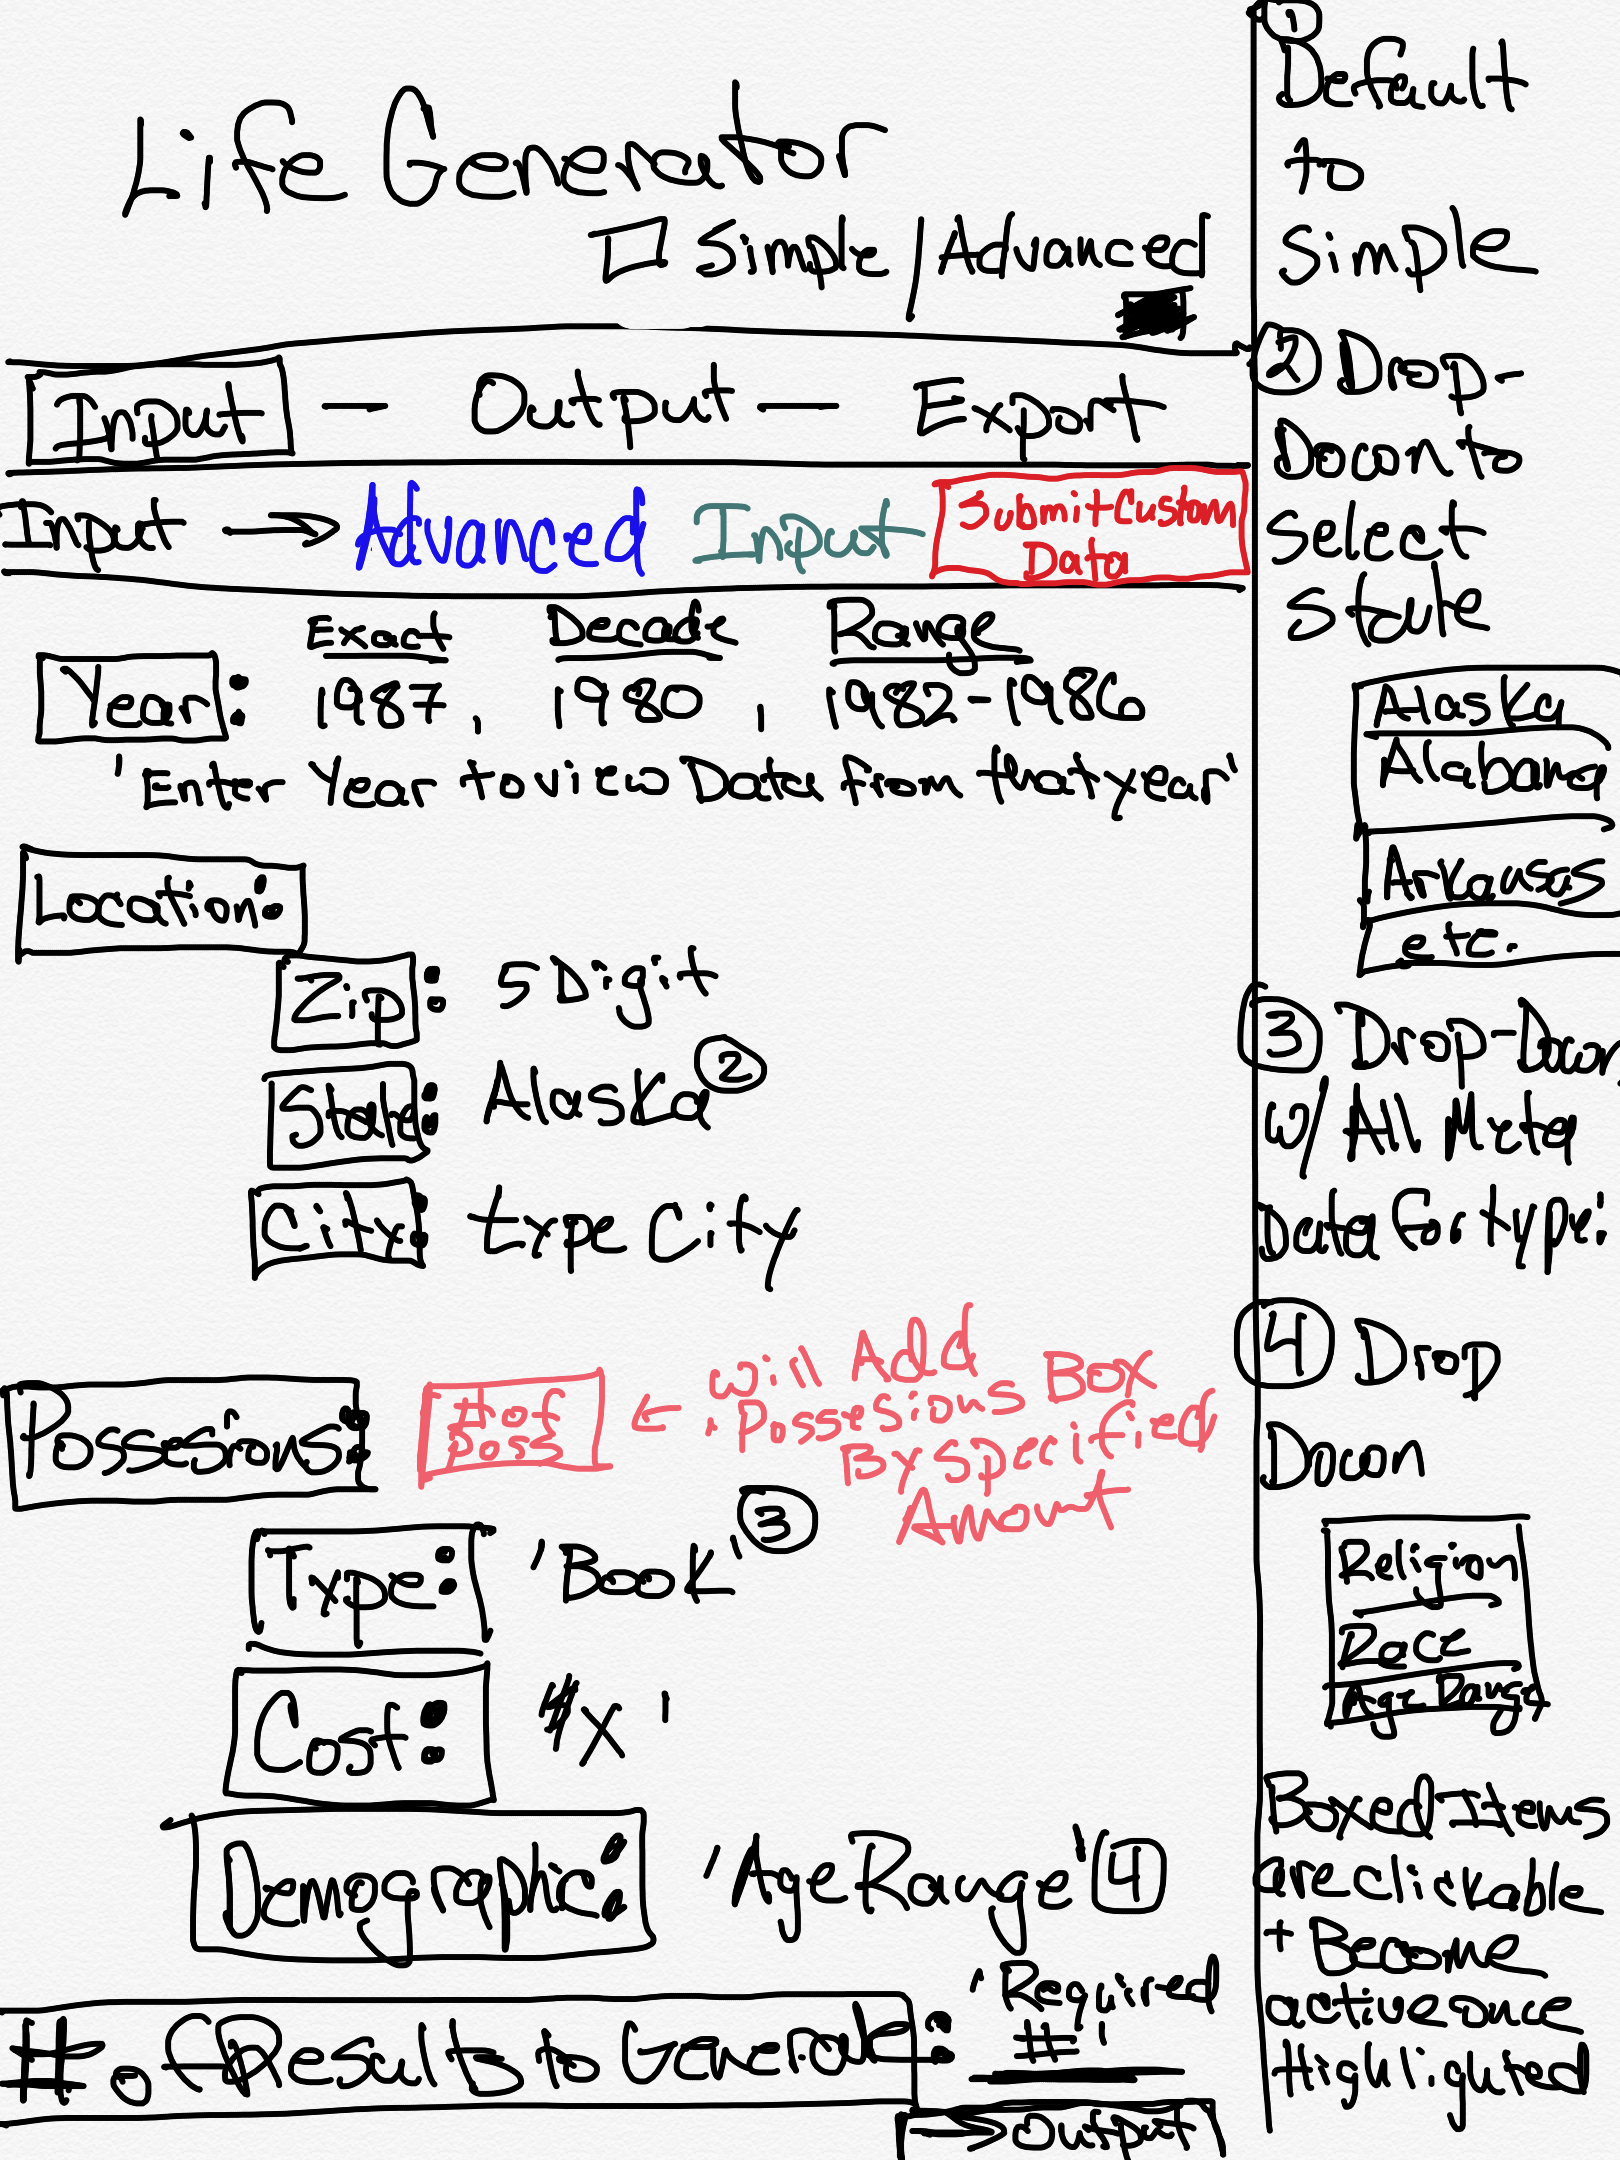 Life Generator
Simple / Advanced
Input — Output — Export
Input → Advanced Input
Submit Custom
Data
Exact Decade Range
Year: 1987, 1980, 1982-1986
'Enter Year to view Data from that year'
Location:
Zip: 5 Digit
State: Alaska ②
City: type city
Possesions:
# of
poss
← will Add
Possesions Box
By specified
Amount
Type: 'Book' ③
Cost: X '
Demographic: 'Age Range' ④
# of Results to Generate: 'Required
#'
→ output
①
Default
to
simple
② Drop-
Down to
select
state
Alaska
Alabama
Arkansas
etc.
③ Drop-Down
w/ All Meta
Data for type:
④ Drop
Down
Religion
Race
Age Range
Boxed Items
are clickable
+ Become
active once
Highlighted